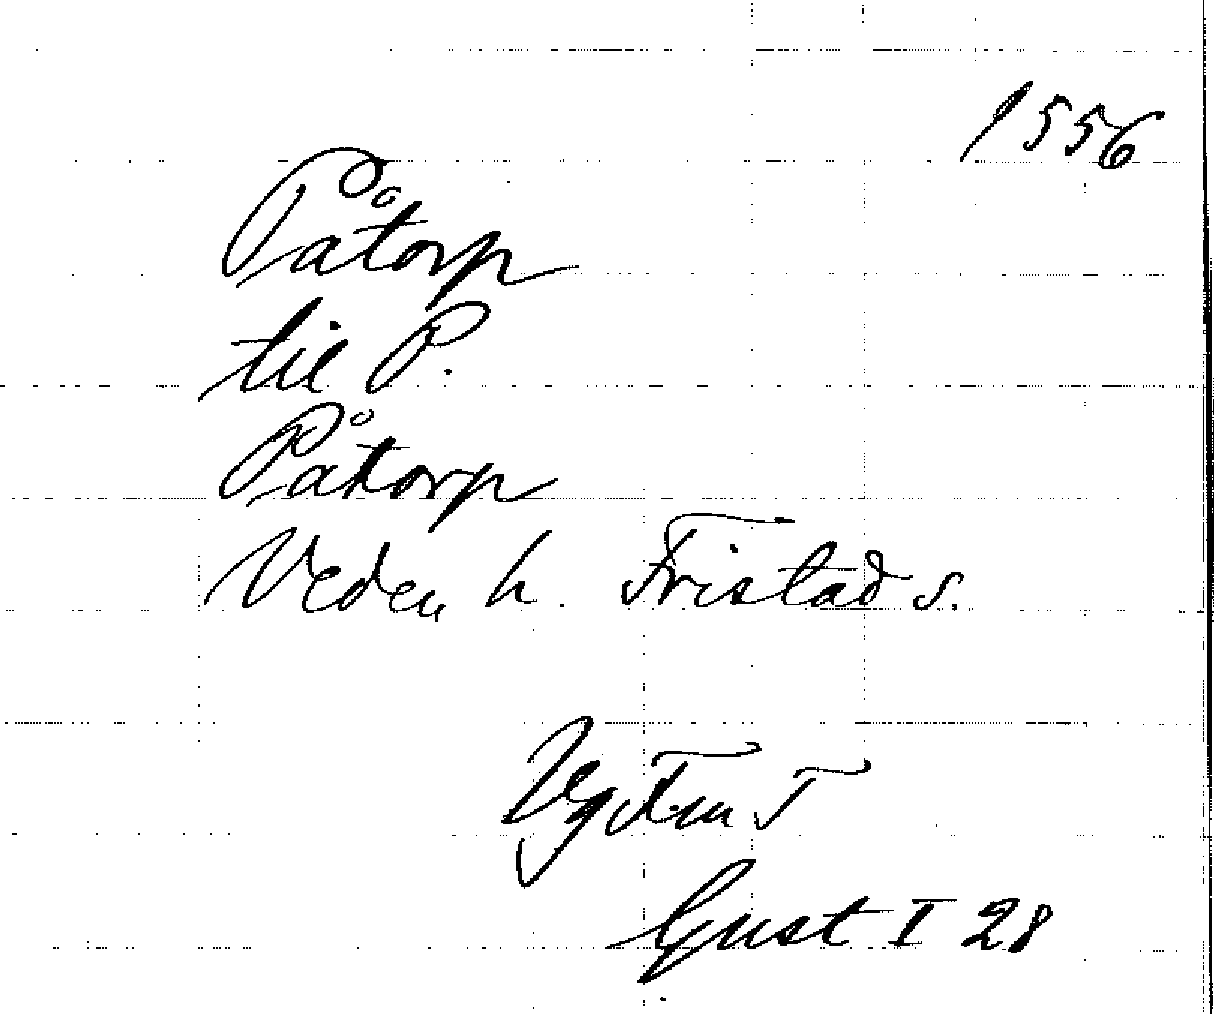 1556
Påtorp
till P.
Påtorp
Veden h. Fristad s.
Vg Frn T
Gust I 28